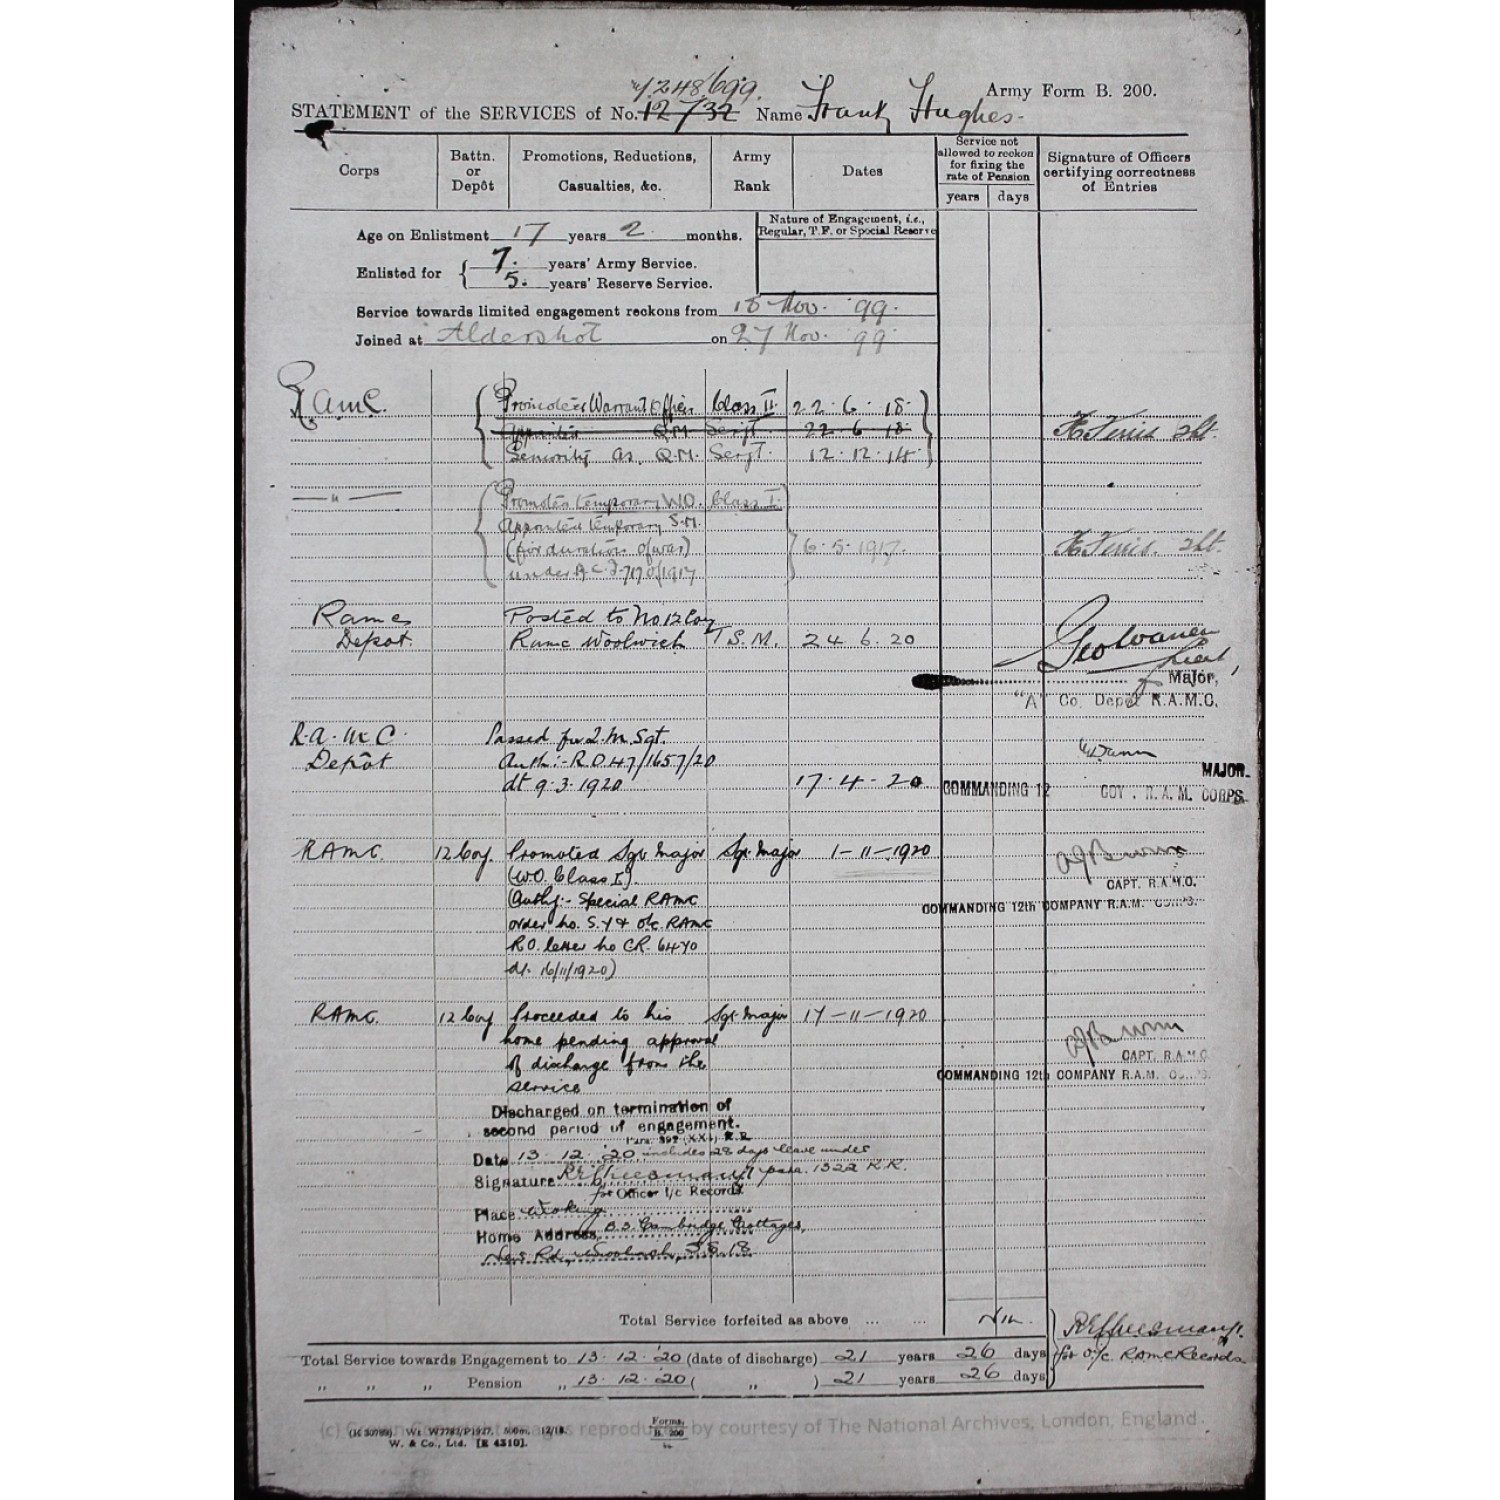 Army Form B. 200.
7248699.
STATEMENT of the SERVICES of No. 12732 Name Frank Hughes
Corps
Battn. or Depôt
Promotions, Reductions, Casualties, &c.
Army Rank
Dates
Service not allowed to reckon for fixing the rate of Pension
years days
Signature of Officers certifying correctness of Entries
Nature of Engagement, i.e., Regular, T.F. or Special Reserve
Age on Enlistment 17 years 2 months.
Enlisted for 7. years' Army Service.
5. years' Reserve Service.
Service towards limited engagement reckons from 18 Nov. 99.
Joined at Aldershot on 27 Nov. 99
RAMC. Promoted Warrant Officer Class II 22.6.18
Appointed Q.M. Sergt. 22 6 18
Seniority as Q.M. Sergt. 12.12.14
2Lt.
— " — Promoted temporary W.O. Class I.
Appointed temporary S.M.
(for duration of war) 6.5.1917. 2Lt.
under A.C.I. /1917
RAMC Posted to No 12 Coy
Depot. RAMC Woolwich T.S.M. 24.6.20
Lieut
Major,
"A" Co. Depot R.A.M.C.
R.A.M.C. Passed for Q.M. Sgt.
Depôt Auth:- R.O. 47/1657/20
dt 9.3.1920 17.4.20
MAJOR.
COMMANDING 12 COY. R.A.M. CORPS.
RAMC. 12 Coy. Promoted Sgt Major Sgt Major 1-11-1920
(W.O. Class I).
(Authy:- Special RAMC
order no. S.Y4 o/c RAMC
R.O. letter no CR. 6470
dt. 16/11/1920)
CAPT. R.A.M.C.
COMMANDING 12th COMPANY R.A.M. CORPS.
RAMC. 12 Coy Proceeded to his Sgt Major 17-11-1920
home pending approval
of discharge from the
service
CAPT. R.A.M.C
COMMANDING 12th COMPANY R.A.M. CORPS.
Discharged on termination of
second period of engagement.
Para. 392 (XXI) K.R.
Date 13.12.'20 includes 28 days leave under
Signature para. 1322 K.R.
for Officer i/c Records
Place Woking
Home Address, B.3. Cambridge Cottages,
New Rd, Woolwich, S.E.18.
Total Service forfeited as above ... ... Nil.
Total Service towards Engagement to 13.12.'20 (date of discharge) 21 years 26 days
for O/c. RAMC Records
" " " Pension " 13.12.'20 ( " ) 21 years 26 days
(c) Crown Copyright Images reproduced by courtesy of The National Archives, London, England
W. & Co., Ltd. [E 4310].
Forms
B. 200